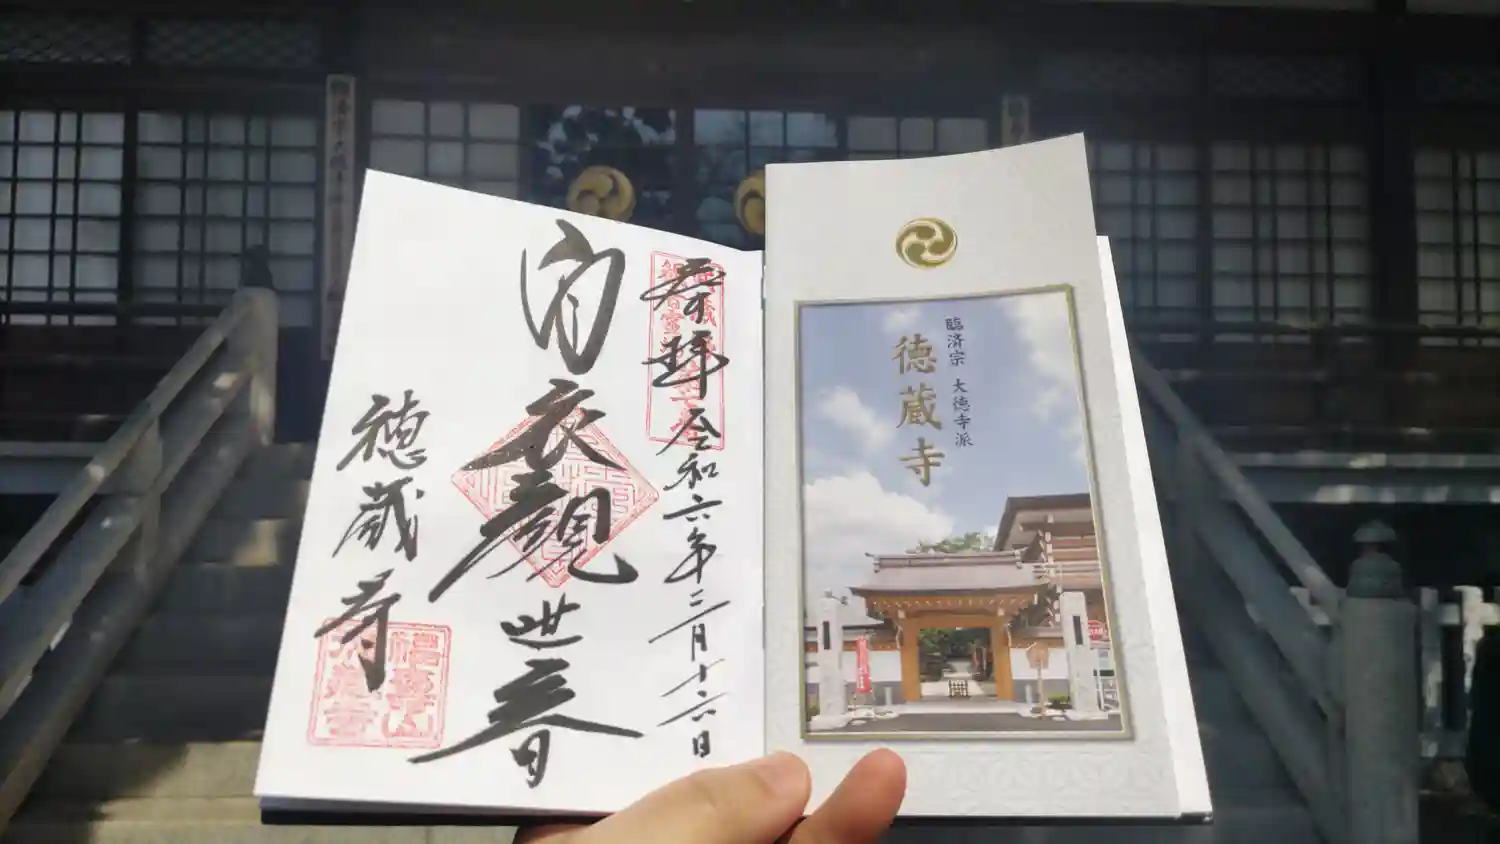 奉拝
令和六年三月十六日
白衣観世音
徳蔵寺
臨済宗 大徳寺派
徳蔵寺